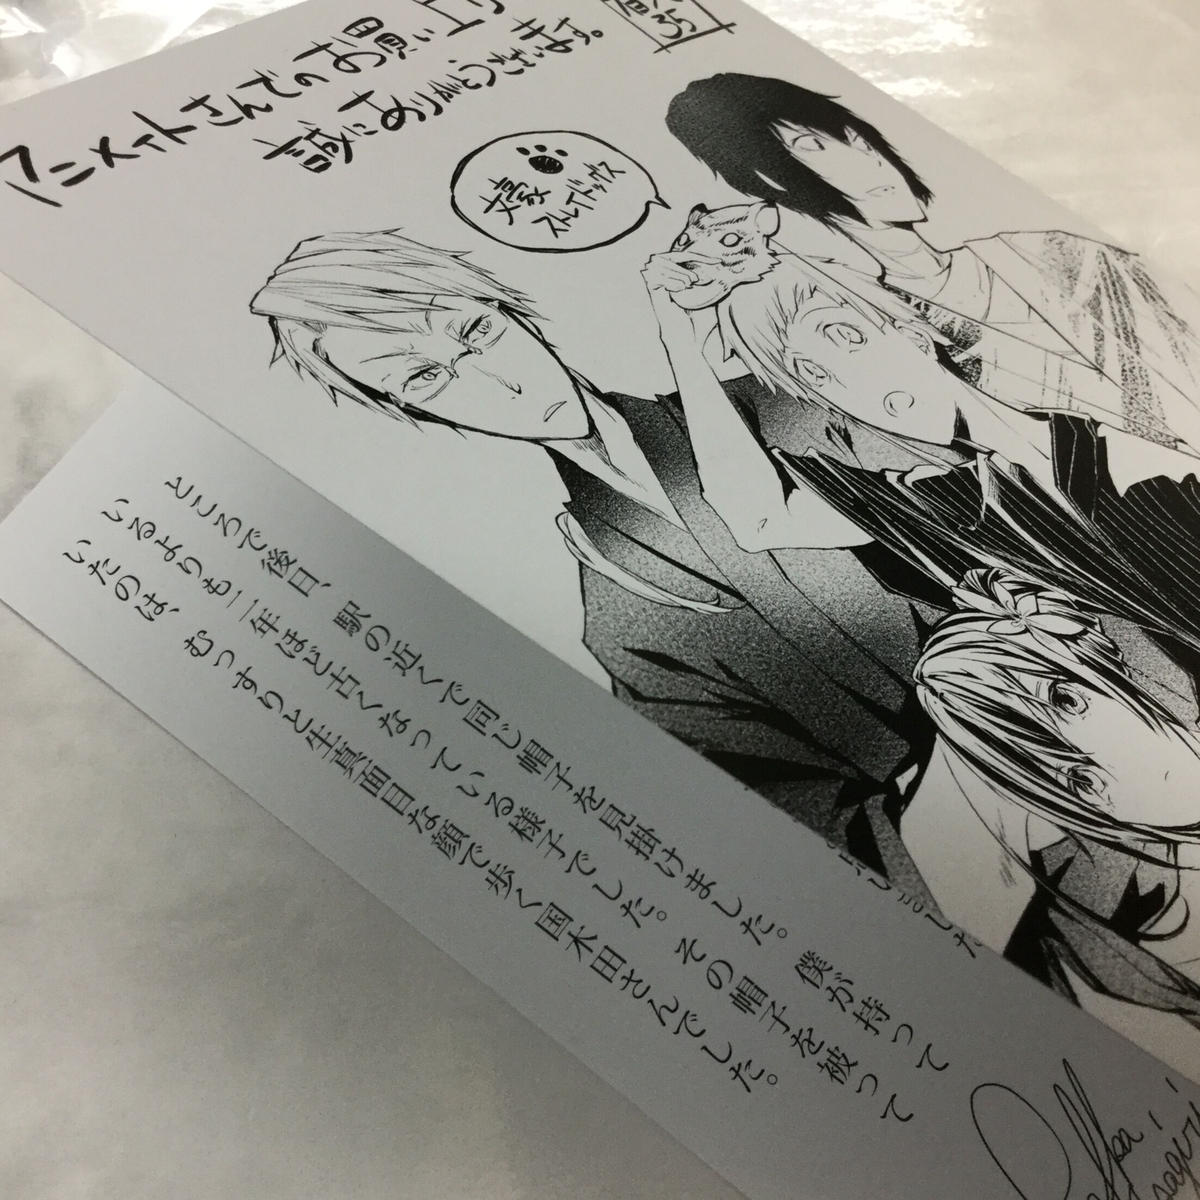 アニメイトさんでのお買い上
誠にありがとうございます。
文豪
ストレイドッグス
ところで後日、駅の近くで同じ帽子を見掛けました。僕が持って
いるよりも二年ほど古くなっている様子でした。その帽子を被って
いたのは、むっすりと生真面目な顔で歩く国木田さんでした。
しました